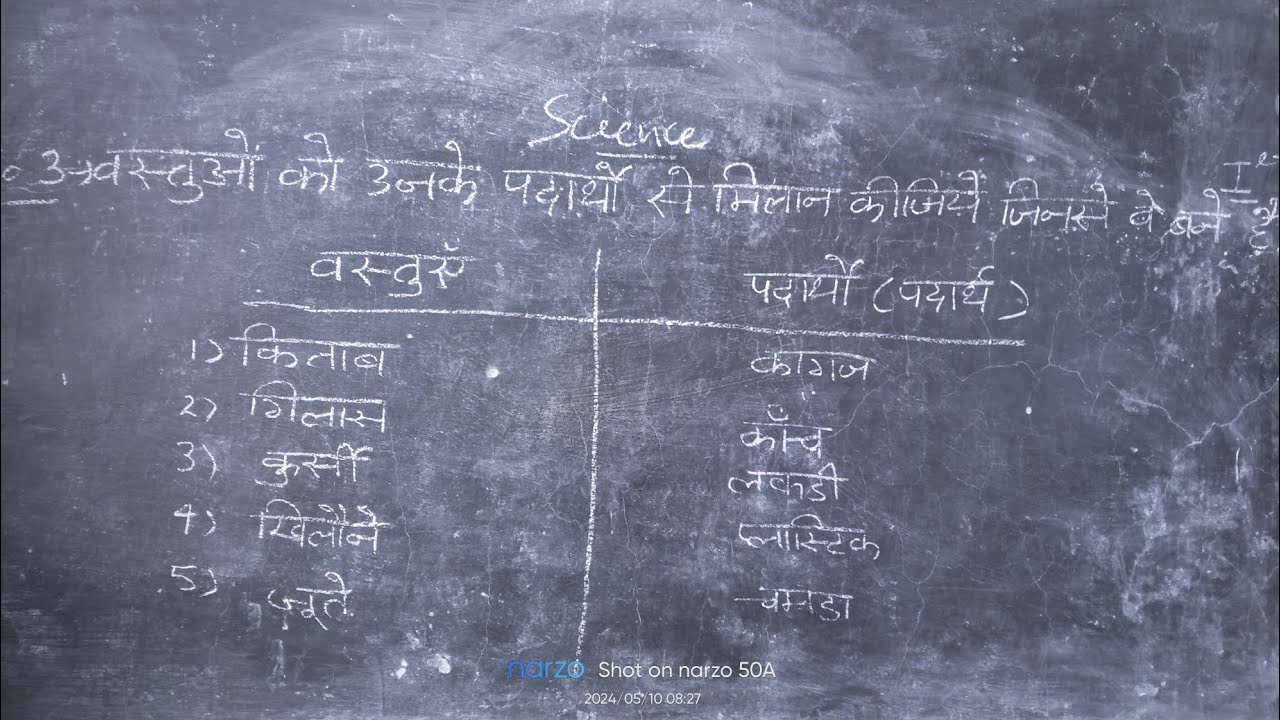 Science
3→ वस्तुओं को उनके पदार्थों से मिलान कीजिये जिनसे वे बने है
वस्तुएँ पदार्थों (पदार्थ)
1) किताब कागज
2) गिलास काँच
3) कुर्सी लकडी
4) खिलौने प्लास्टिक
5) जूते चमडा
narzo Shot on narzo 50A
2024/05/10 08:27